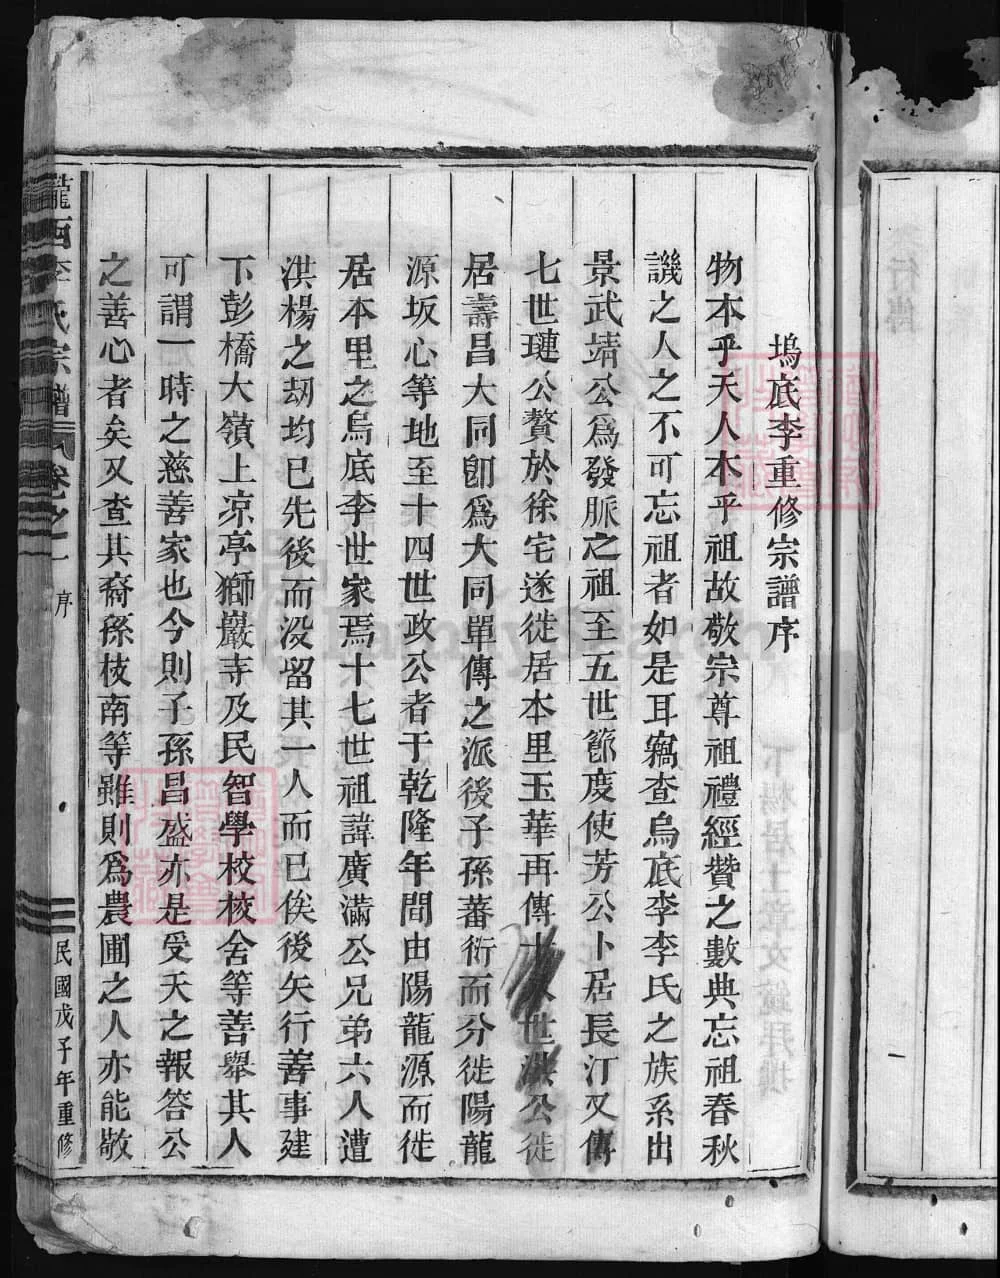 塢底李重修宗譜序
物本乎天人本乎祖故敬宗尊祖禮經贊之數典忘祖春秋
譏之人之不可忘祖者如是耳竊查烏底李李氏之族系出
景武靖公爲發脈之祖至五世節度使芳公卜居長汀又傳
七世璉公贅於徐宅遂徙居本里玉華再傳十 世洪公徙
居壽昌大同卽爲大同單傳之派後子孫蕃衍而分徙陽龍
源坂心等地至十四世政公者于乾隆年間由陽龍源而徙
居本里之烏底李世家焉十七世祖諱廣滿公兄弟六人遭
洪楊之刼均已先後而没留其一人而已俟後矢行善事建
下彭橋大嶺上凉亭獅巖寺及民智學校校舍等善舉其人
可謂一時之慈善家也今則子孫昌盛亦是受天之報答公
之善心者矣又查其裔孫枝南等雖則爲農圃之人亦能敬
隴西李氏宗譜 卷之一 序 民國戊子年重修